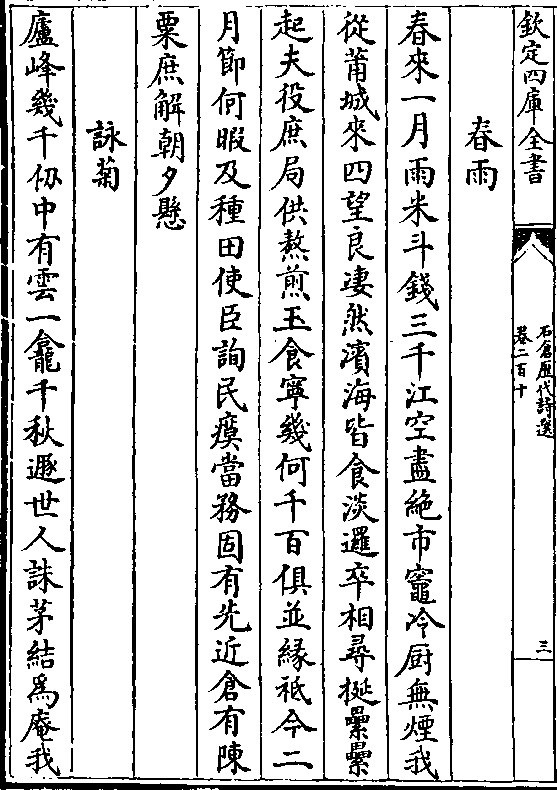 欽定四庫全書
石倉歷代詩選
卷二百十
三
春雨
春來一月雨米斗錢三千江空盡絶市竈冷厨無煙我
從莆城來四望良凄然濱海皆食淡邏卒相尋挻纍纍
起夫役庶局供熬煎玉食寧幾何千百俱並縁祗今二
月節何暇及種田使臣詢民瘼當務固有先近倉有陳
粟庶解朝夕懸
詠菊
廬峰幾千仭中有雲一龕千秋遯世人誅茅結為庵我